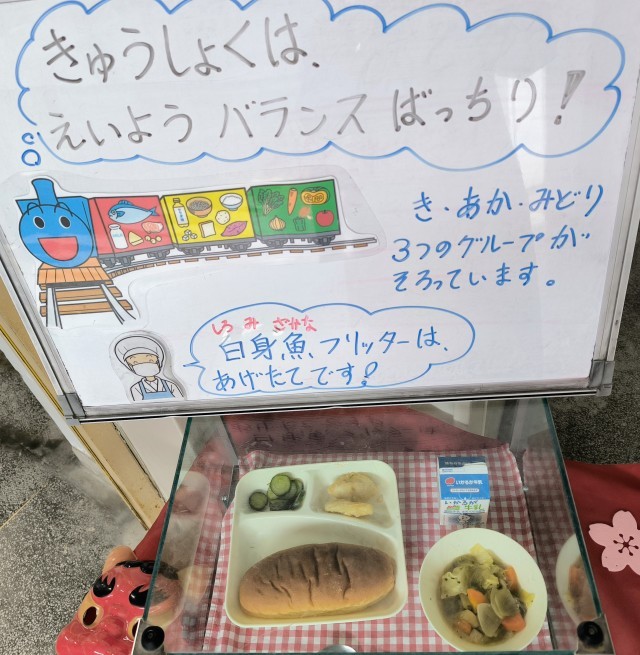 きゅうしょくは、
えいよう バランス ばっちり！
き・あか・みどり
3つのグループが
そろっています。
しろ み ざかな
白身魚フリッターは、
あげたてです！
いかるが牛乳
いかるが
牛乳